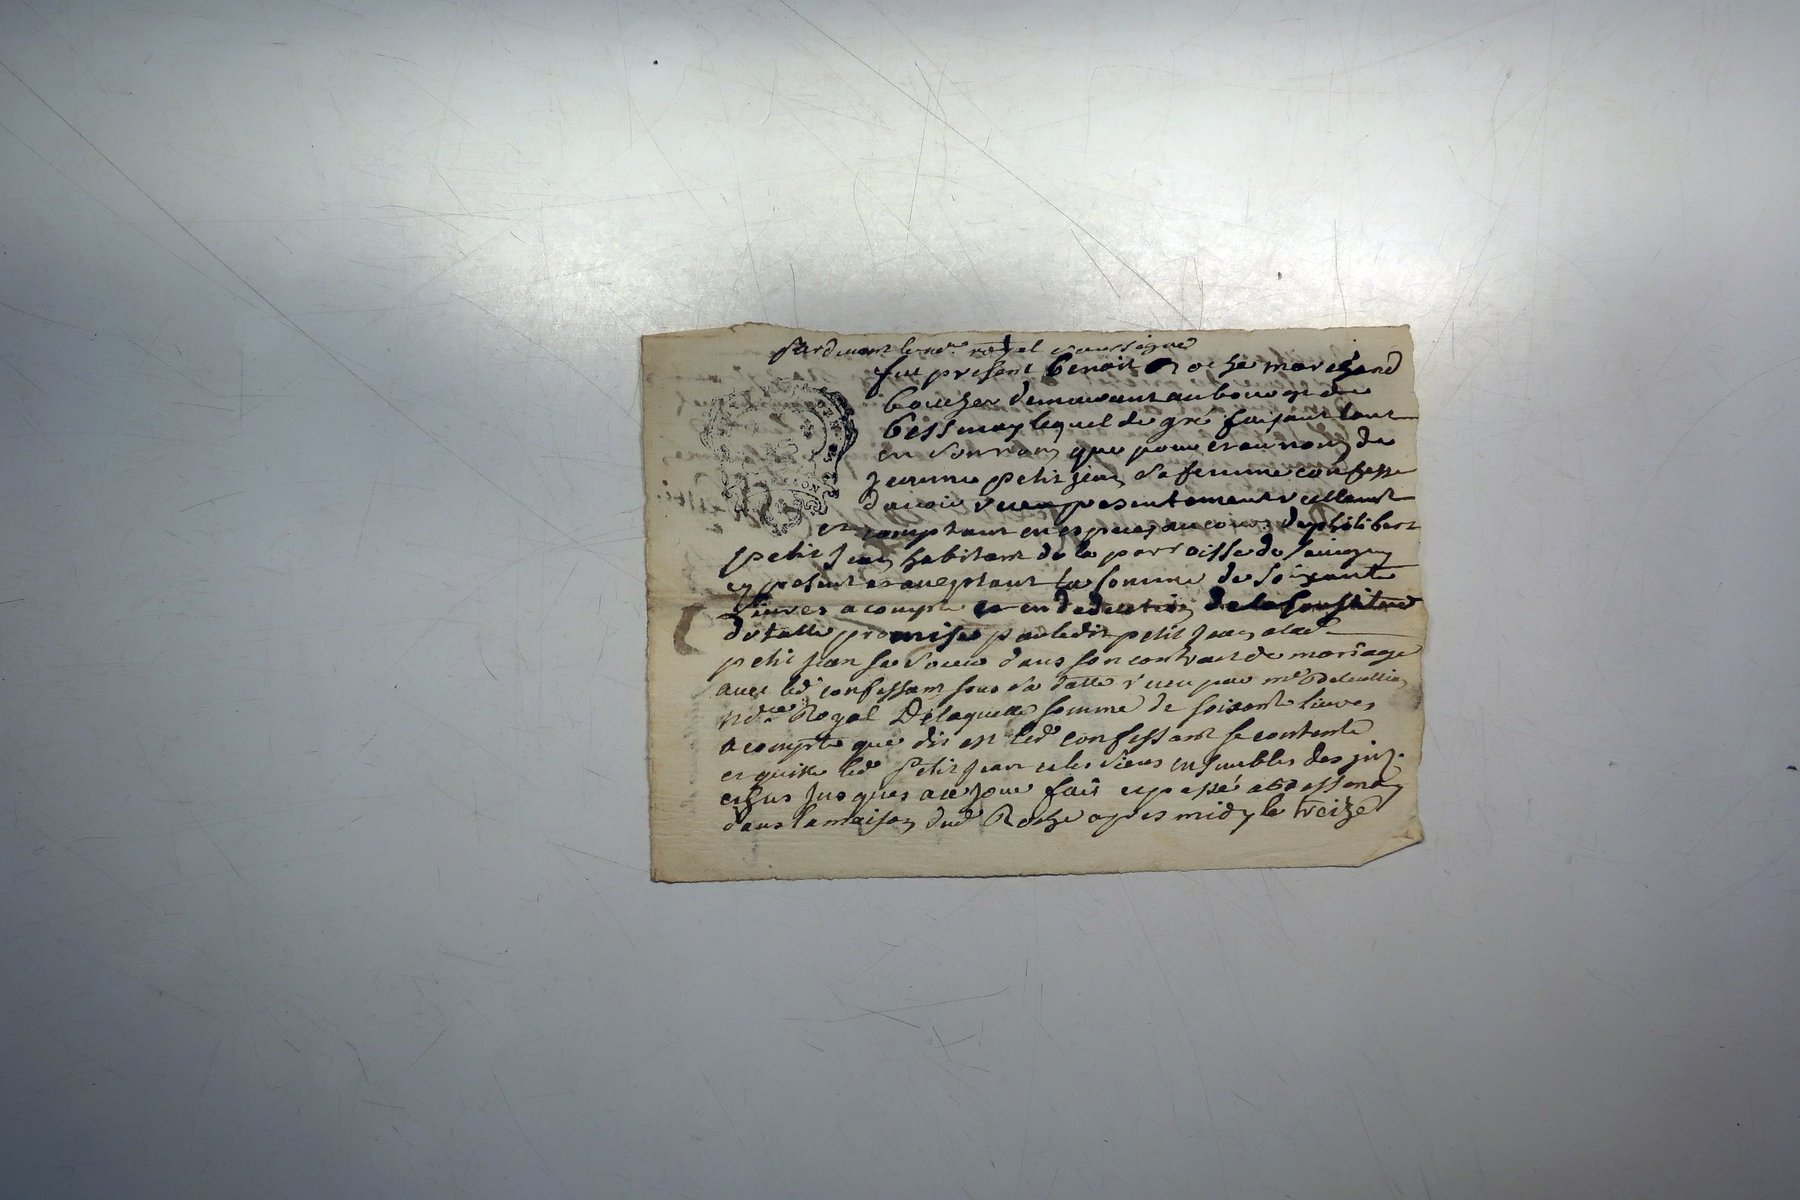 Pardevant le no.re royal soussigné
fut présent benoit Roche marchand
boucher demeurant au bourg de
bessenay lequel de gré faisant tant
en son nom que pour et au nom de
Jeanne petit Jean sa femme confesse
davoir receu presentement reellement
et comptant en espèces au cours de philibert
petit Jean habitant de la parroisse de Savigny
cy present et acceptant la somme de soixante
Livres acompte et en deduction de la Constitu͞o
dotalle promise par ledit petit Jean alad.
petit Jean sa soeur dans son contract de mariage
avec led. confessant sous sa datte receu par me
No.re Royal De laquelle somme de soixante livres
acompte que dit est led. confessant se contente
et quitte led. Petit Jean et les siens ensembles des int.
echus Jusques a ce Jour fait et passé a Bessenay
dans la maison dud. Roche apres midy le treize